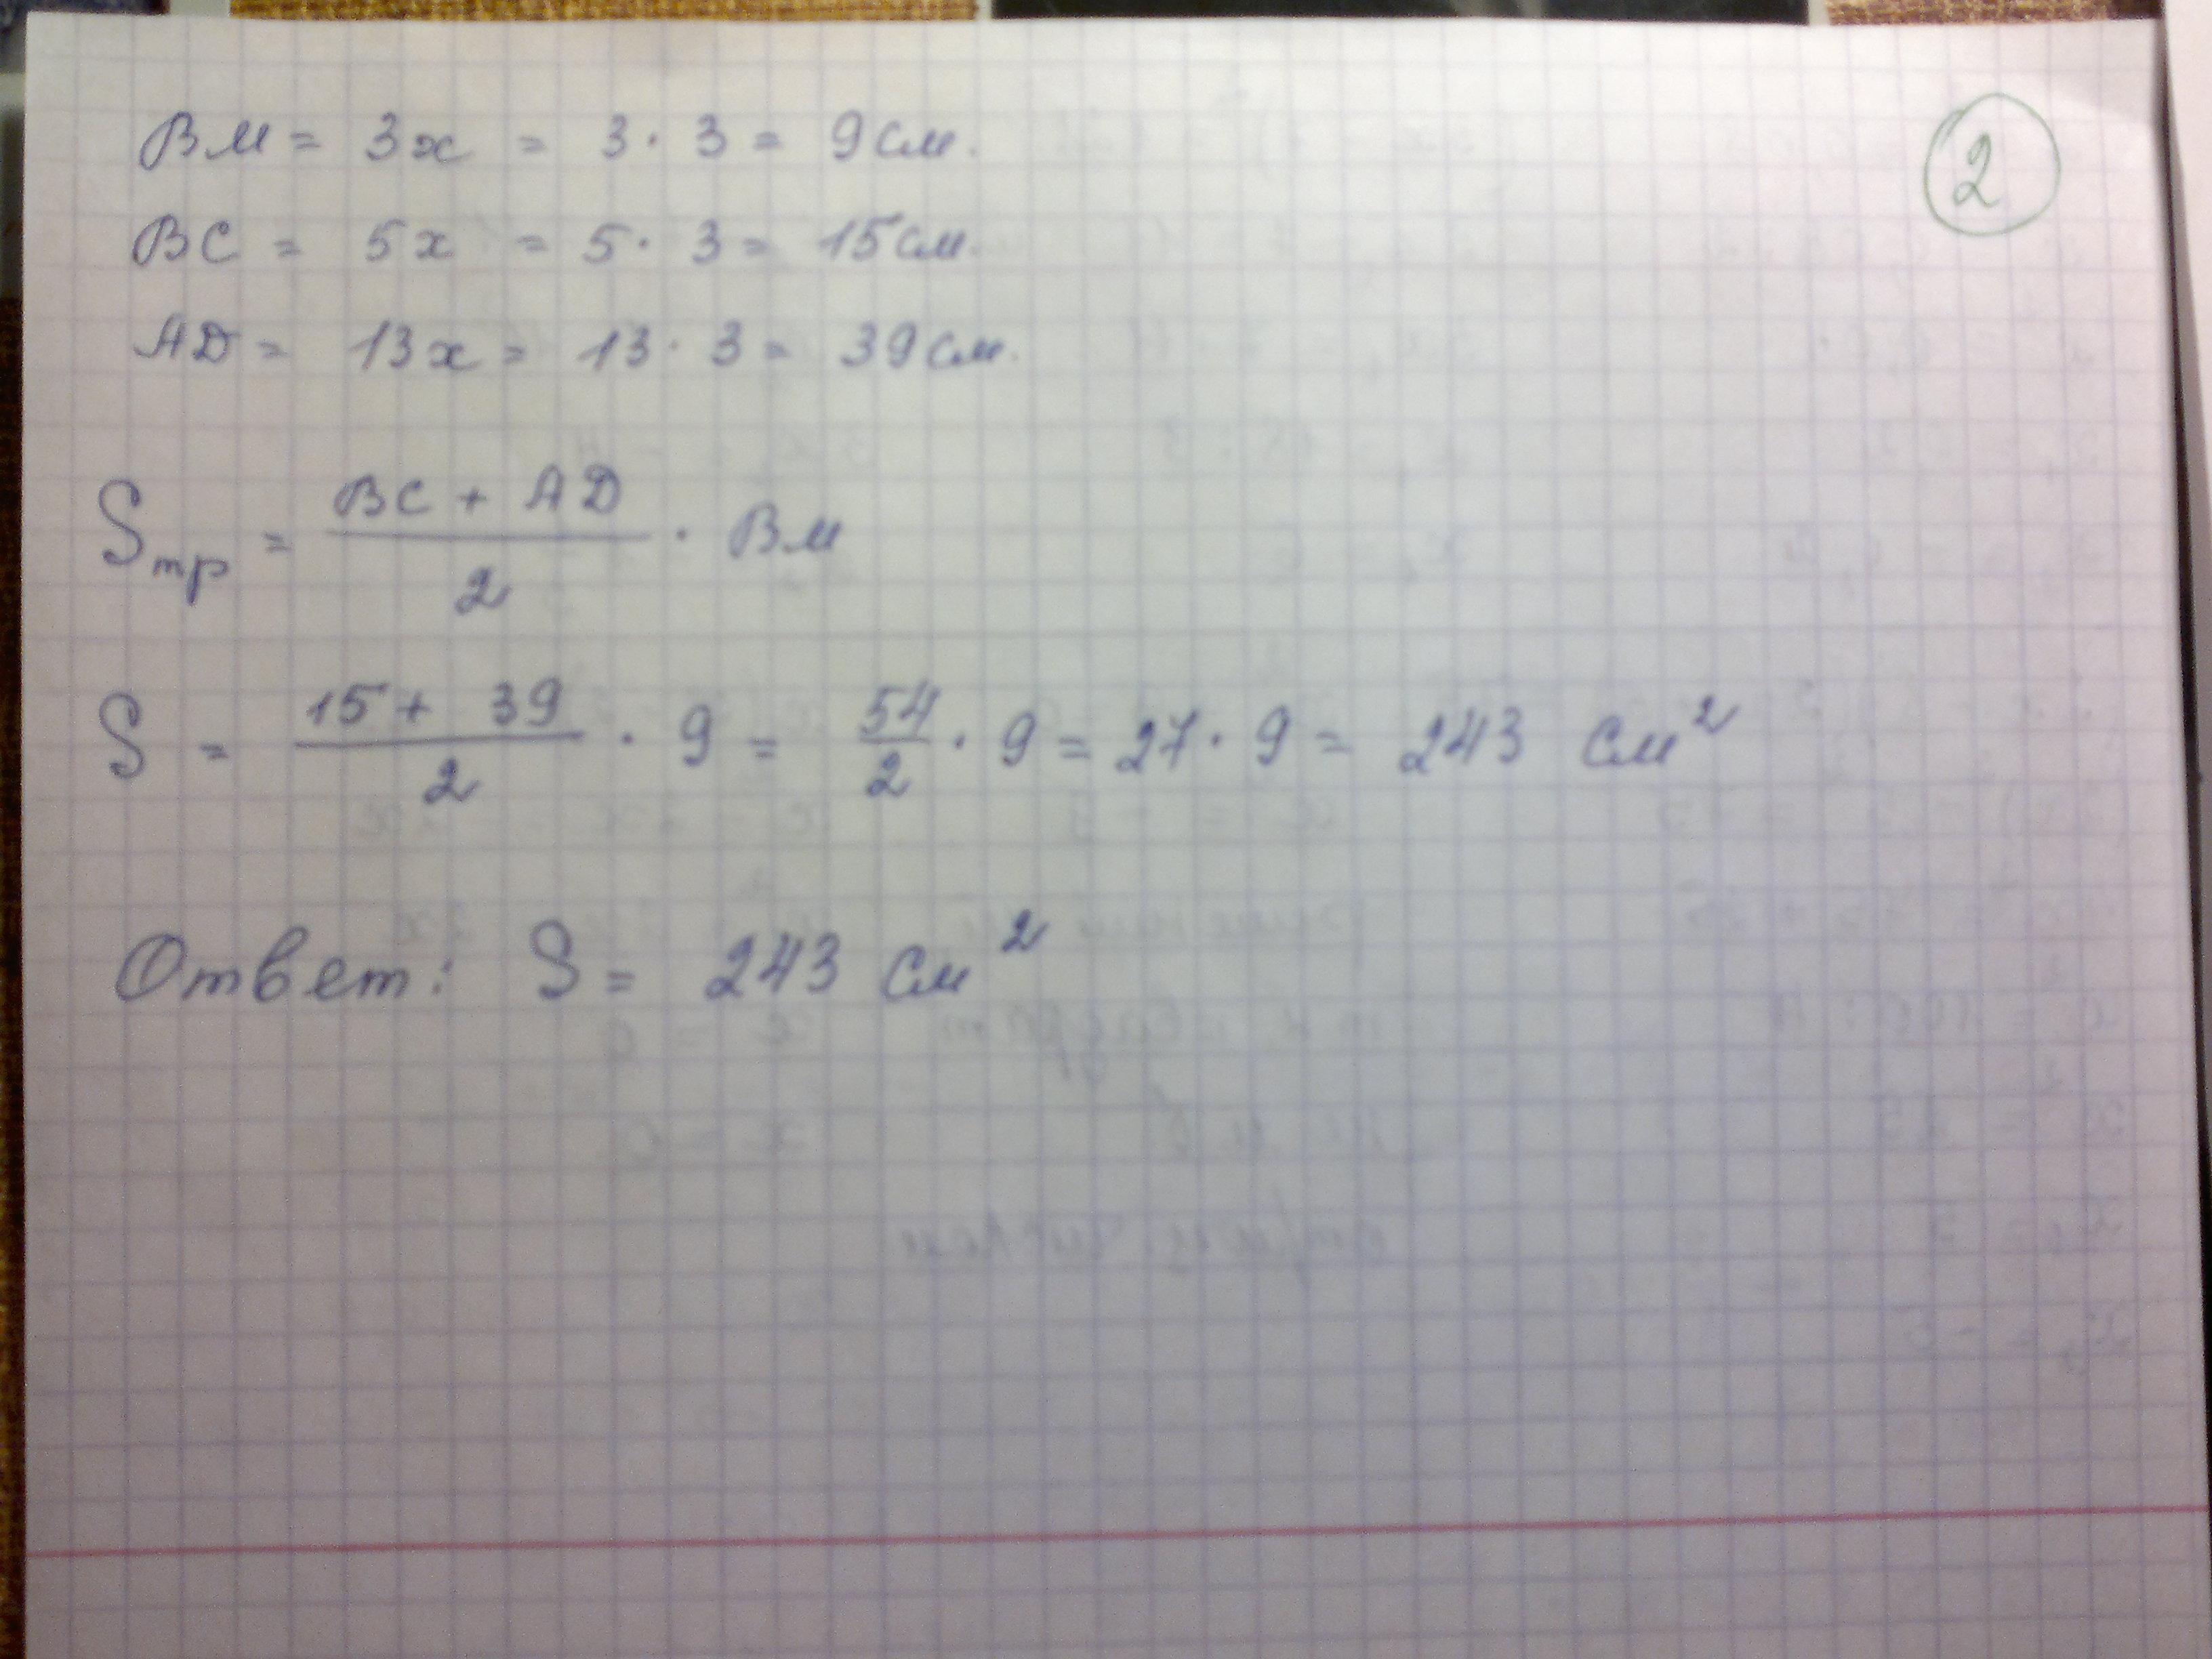 2
ВМ = 3x = 3 · 3 = 9 см.
ВС = 5x = 5 · 3 = 15 см.
АD = 13x = 13 · 3 = 39 см.
Sтр = (ВС + АD)/2 · ВМ
S = (15 + 39)/2 · 9 = 54/2 · 9 = 27 · 9 = 243 см²
Ответ: S = 243 см²